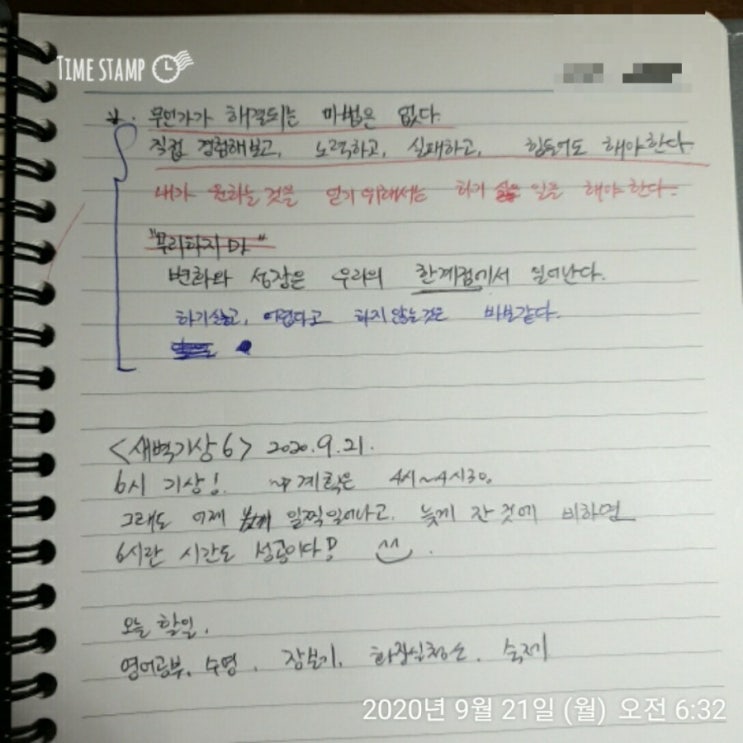 TIME STAMP
무언가가 해결되는 마법은 없다.
직접 경험해보고, 노력하고, 실패하고, 힘들어도 해야한다.
내가 원하는것을 얻기위해서는 하기 싫은 일을 해야한다.
"무리하지마"
변화와 성장은 우리의 한계점에서 일어난다.
하기싫고, 어렵다고 하지않는것은 바보같다.
<새벽기상6> 2020.9.21.
6시 기상! 계획은 4시~4시30.
그래도 어제 일찍일어나고. 늦게 잔것에 비하면
6시란 시간도 성공이다!
오늘 할일.
영어공부, 수영, 장보기, 화장실청소,
2020년 9월 21일 (월) 오전 6:32